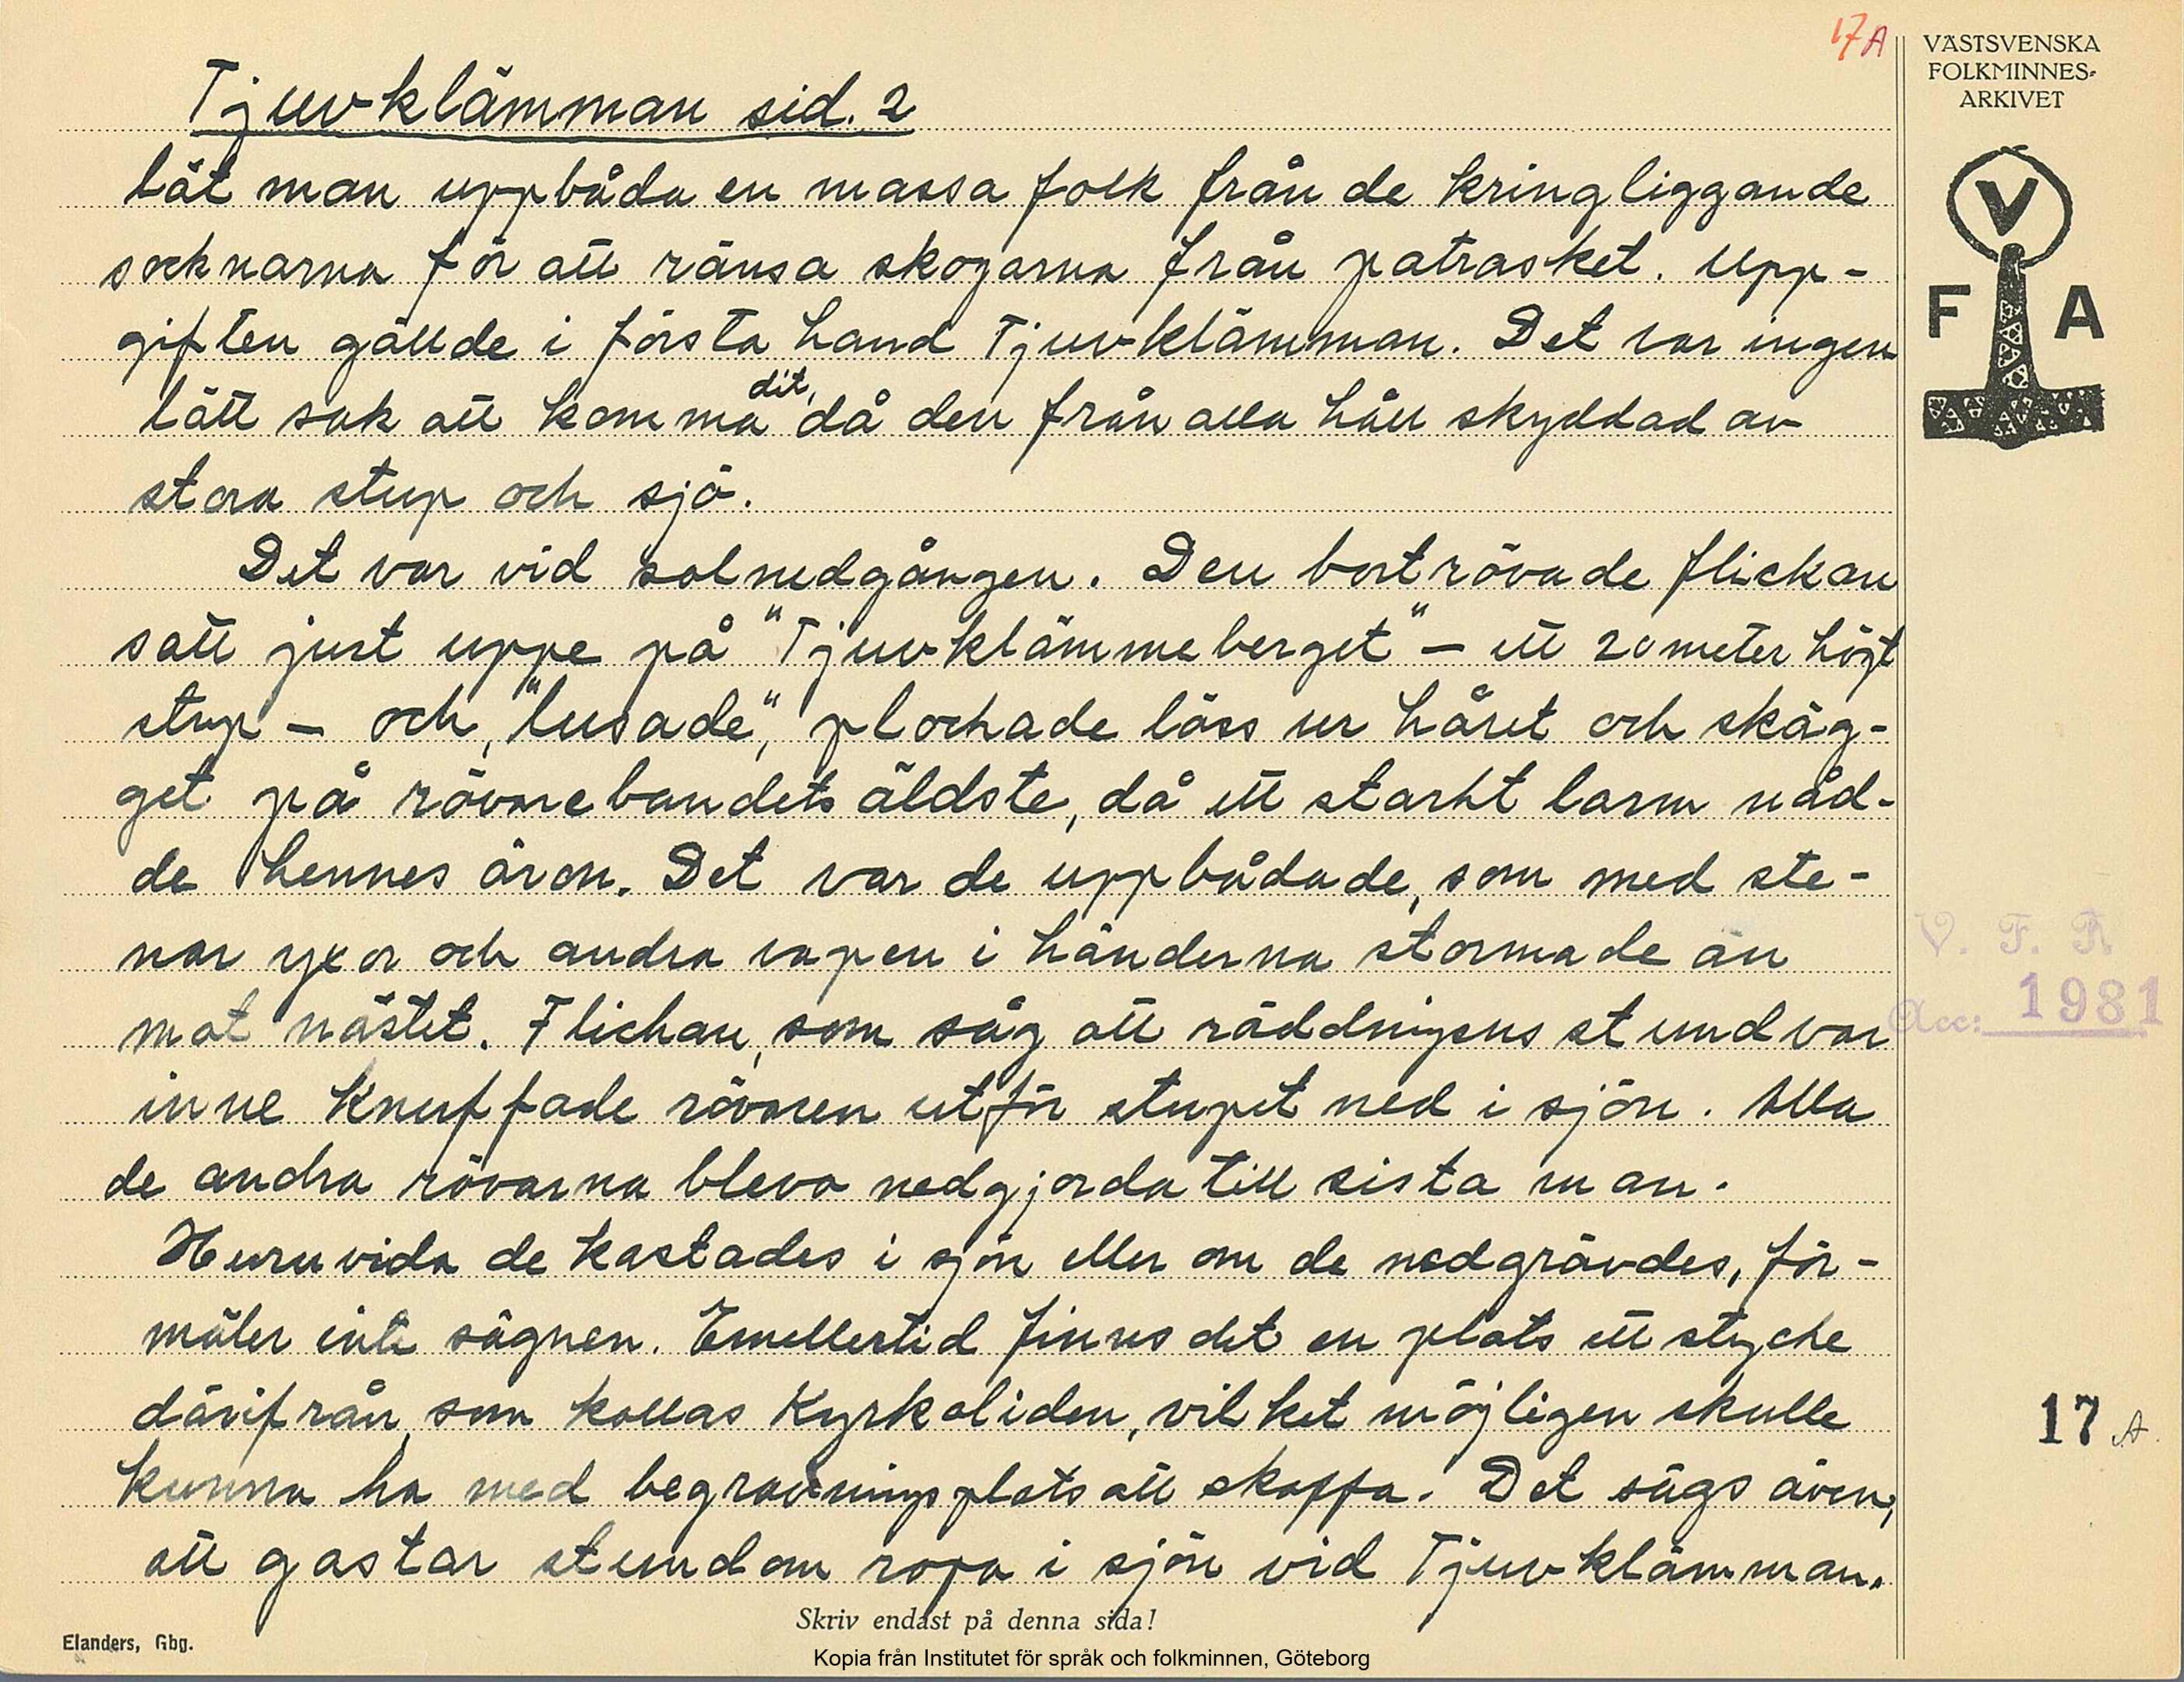 17A
VÄSTSVENSKA
FOLKMINNES-
ARKIVET
V
F A
Tjuvklämman sid. 2
lät man uppbåda en massa folk från de kringliggande
socknarna för att ränsa skogarna från patrasket. Upp-
giften gällde i första hand Tjuvklämman. Det var ingen
lätt sak att komma dit, då den från alla håll skyddad av
stora stup och sjö.
Det var vid solnedgången. Den bortrövade flickan
satt just uppe på "Tjuvklämmeberget" – ett 20 meter högt
stup – och, "lusade", plockade löss ur håret och skäg-
get på rövarebandets äldste, då ett starkt larm nåd-
de hennes öron. Det var de uppbådade, som med ste-
nar yxor och andra vapen i händerna stormade an
mot nästet. Flickan, som såg att räddningens stund var
inne knuffade rövaren utför stupet ned i sjön. Alla
de andra rövarna blevo nedgjorda till sista man.
Huruvida de kastades i sjön eller om de nedgrävdes, för-
mäler inte sägnen. Emellertid finns det en plats ett stycke
därifrån, som kallas Kyrkoliden, vilket möjligen skulle
kunna ha med begravningsplats att skaffa. Det sägs även,
att gastar stundom ropa i sjön vid Tjuvklämman.
V. F. A
Acc: 1981
17 A.
Skriv endast på denna sida!
Elanders, Gbg.
Kopia från Institutet för språk och folkminnen, Göteborg